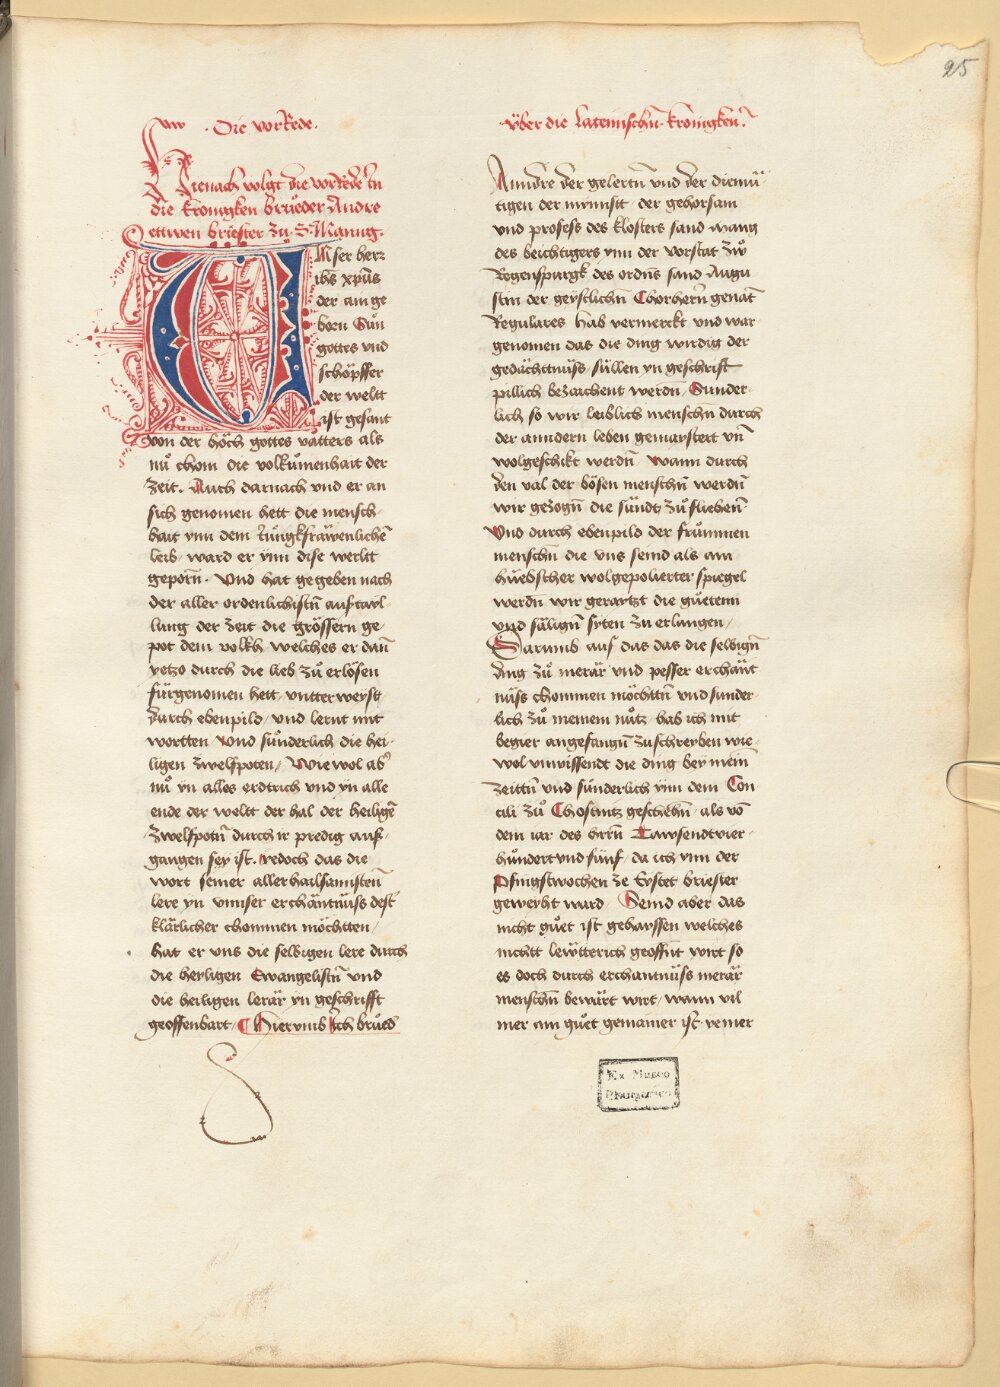 25
Die vorRede.
Hienach volgt die vorrede in
die kronigken brůeder Andre
ettwen briester zu S. Manng.
Unser herr
ihs xp̄us
der ain ge
born Sůn
gottes vnd
schöpffer
der weltt
ist gesant
von der höch gottes vatters als
nů chom die volkůmenhait der
zeit. Auch darnach vnd er an
sich genomen hett die mensch-
hait ynn dem iůngkfräwenlichē
leib / ward er ynn dise werltt
geporn̄. Vnd hat gegeben nach
der aller ordenlichistn̄ austail-
lung der zeit die grössern ge-
pot dem volkh welches er dan̄
yetzo durch die lieb zů erlösen
fürgenomen hett / vntterweyst
durch ebenpild / vnd lernt mit
wortten Vnd sůnderlich die hei-
ligen zwelfpoten / Wiewol ab̾
nů yn alles erdtrich vnd yn alle
ende der weltt der hal der heiligē
zwelfpotn̄ durch ir predig aus-
gangen sey ist. yedoch das die
wort seiner allerhailsamistēn
lere yn vnnser erchäntnüss dest̾
klärlicher chommen möchtten /
hat er vns die selbigen lere durch
die heyligen Ewangelistn̄ vnd
die heiligen lerär yn geschrifft
geoffenbart / Hiervmb Ich brůed̾
über die lateinischn̄ kronigken.
Anndre der gelertn̄ vnd der diemü-
tigen der mynnst / der gehorsam
vnd profess des klosters sand mang
des beichtigers ynn der vorstat zů
Regenspurgk des ordns sand Augu
stin der geystlichn̄ Chorhern̄ genāt
Regulares hab vermerckt vnd war
genomen das die ding wirdig der
gedächttnüss / süllen yn geschrift
pillich bezaichent werdn̄ / Sunder-
lich so wir leiblich menschn̄ durch
der anndern leben gemaistert vn̄
wolgeschikt werdn̄ Wann durch
den val der bösen menschn̄ werdn̄
wir gezogn̄ die sündt zů fliehen̄
Vnd durch ebenpild der frůmmen
menschn̄ die vns seind als ain
hüebscher wolgepolierter spiegel
werdn̄ wir geraitzt die gůetenn
vnd sälign̄ syten zu erlangen /
Darumb auf das das die selbign̄
ding zů merär vnd pesser erchänt
nüss chommen möchttn̄ vnd sunder-
lich zů meinem nůtz / hab ich mit
begier angefangn̄ zuschreyben wie-
wol vnwissendt die ding bey mein̄
zeittn̄ vnd sünderlich ynn dem Con
cili zů Chostnitz geschehn̄ / als vō
dem iar des hrrn̄ Tawsendtvier-
hůndert vnd fünf / da ich ynn der
Pfingstwochen ze Eystet briester
geweyht ward / Seind aber das
nicht gůet ist gehayssen welches
nichtt lewtterich geoffnt wirt so
es doch durch erchantnüss merär
menschn̄ bewärt wirt / wann vil
mer ain gůet gemainer ist / ye mer
Ex Museo